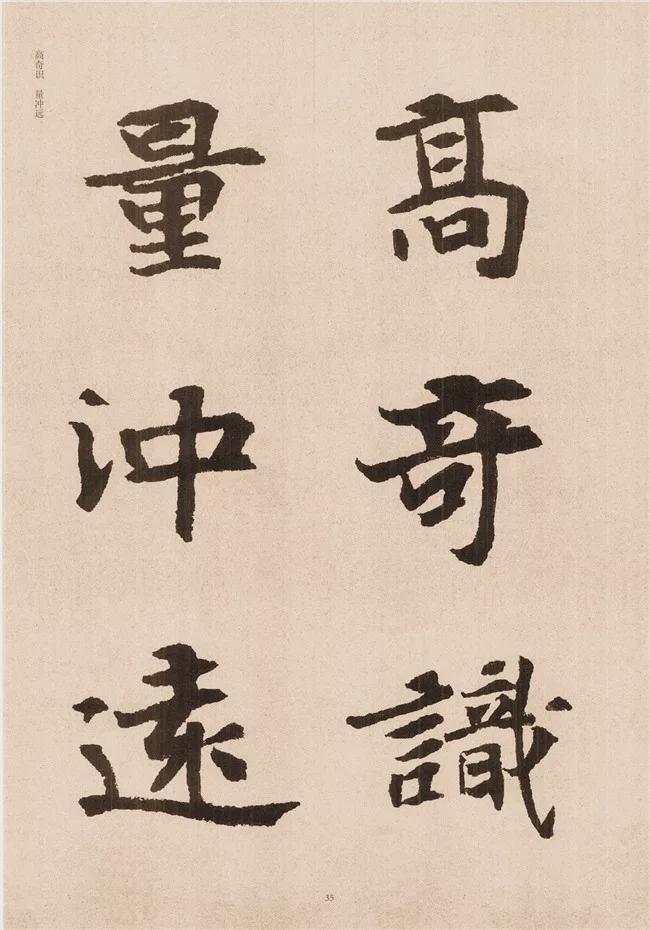 高奇識
量沖遠
高奇识 量冲远
35